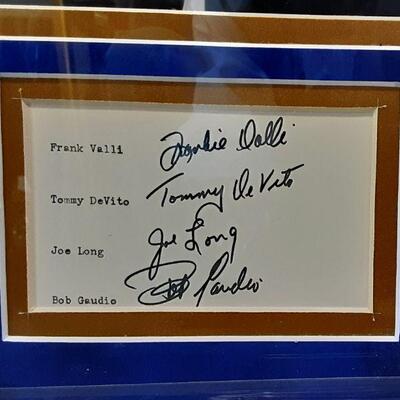 Frank Valli Frankie Valli
Tommy DeVito Tommy DeVito
Joe Long Joe Long
Bob Gaudio Bob Gaudio